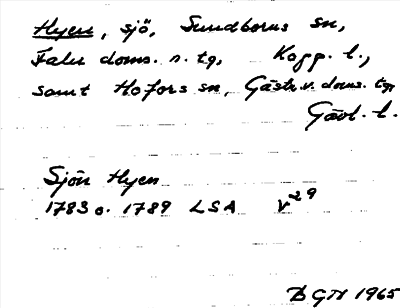 Hyen, sjö, Sundborns sn,
Falu doms. n. tg, Kopp. l.,
samt Hofors sn, Gästr. v. doms. tg,
Gävl. l.
Sjön Hyen
1783 o. 1789 LSA V29
1965